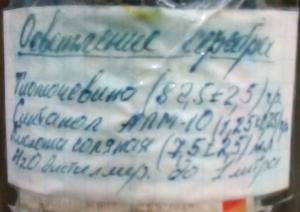 Осветление серебра
Тиомочевина (82,5±2,5) гр.
Синтанол АЛМ-10 (1,25±0,25) гр
Кислота соляная (7,5±2,5) мл
H2O дистиллир. до 1 литра